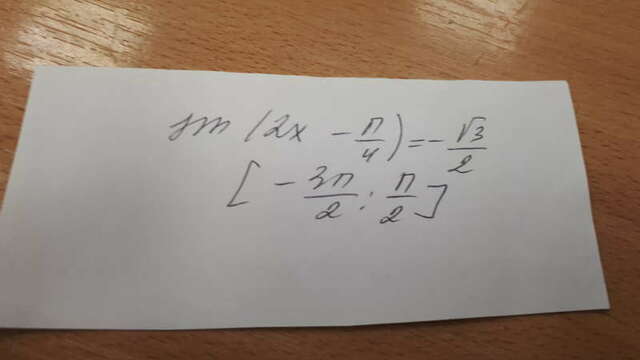 sin (2x - π/4) = - √3/2
[ - 3π/2 ; π/2 ]